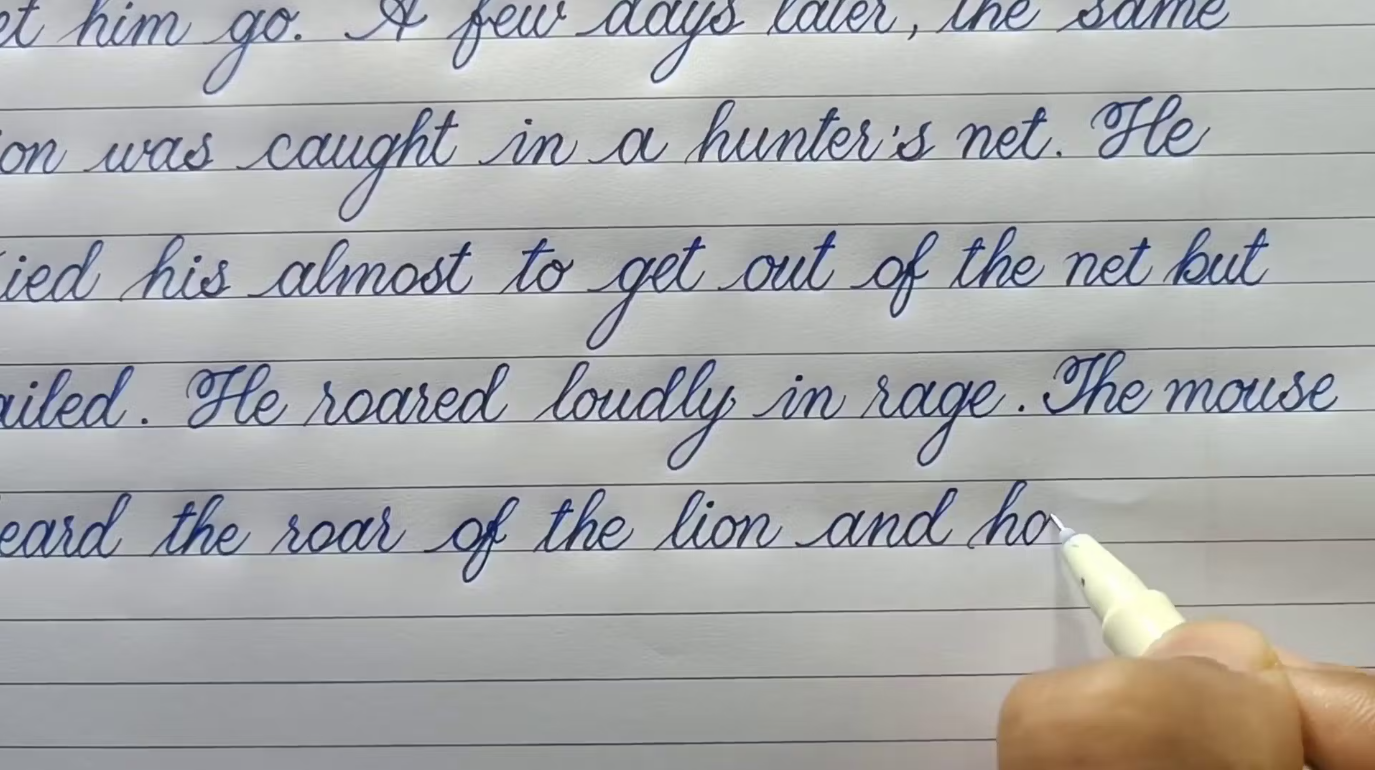 et him go. A few days later, the same
on was caught in a hunter's net. He
ied his almost to get out of the net but
ailed. He roared loudly in rage. The mouse
eard the roar of the lion and ho